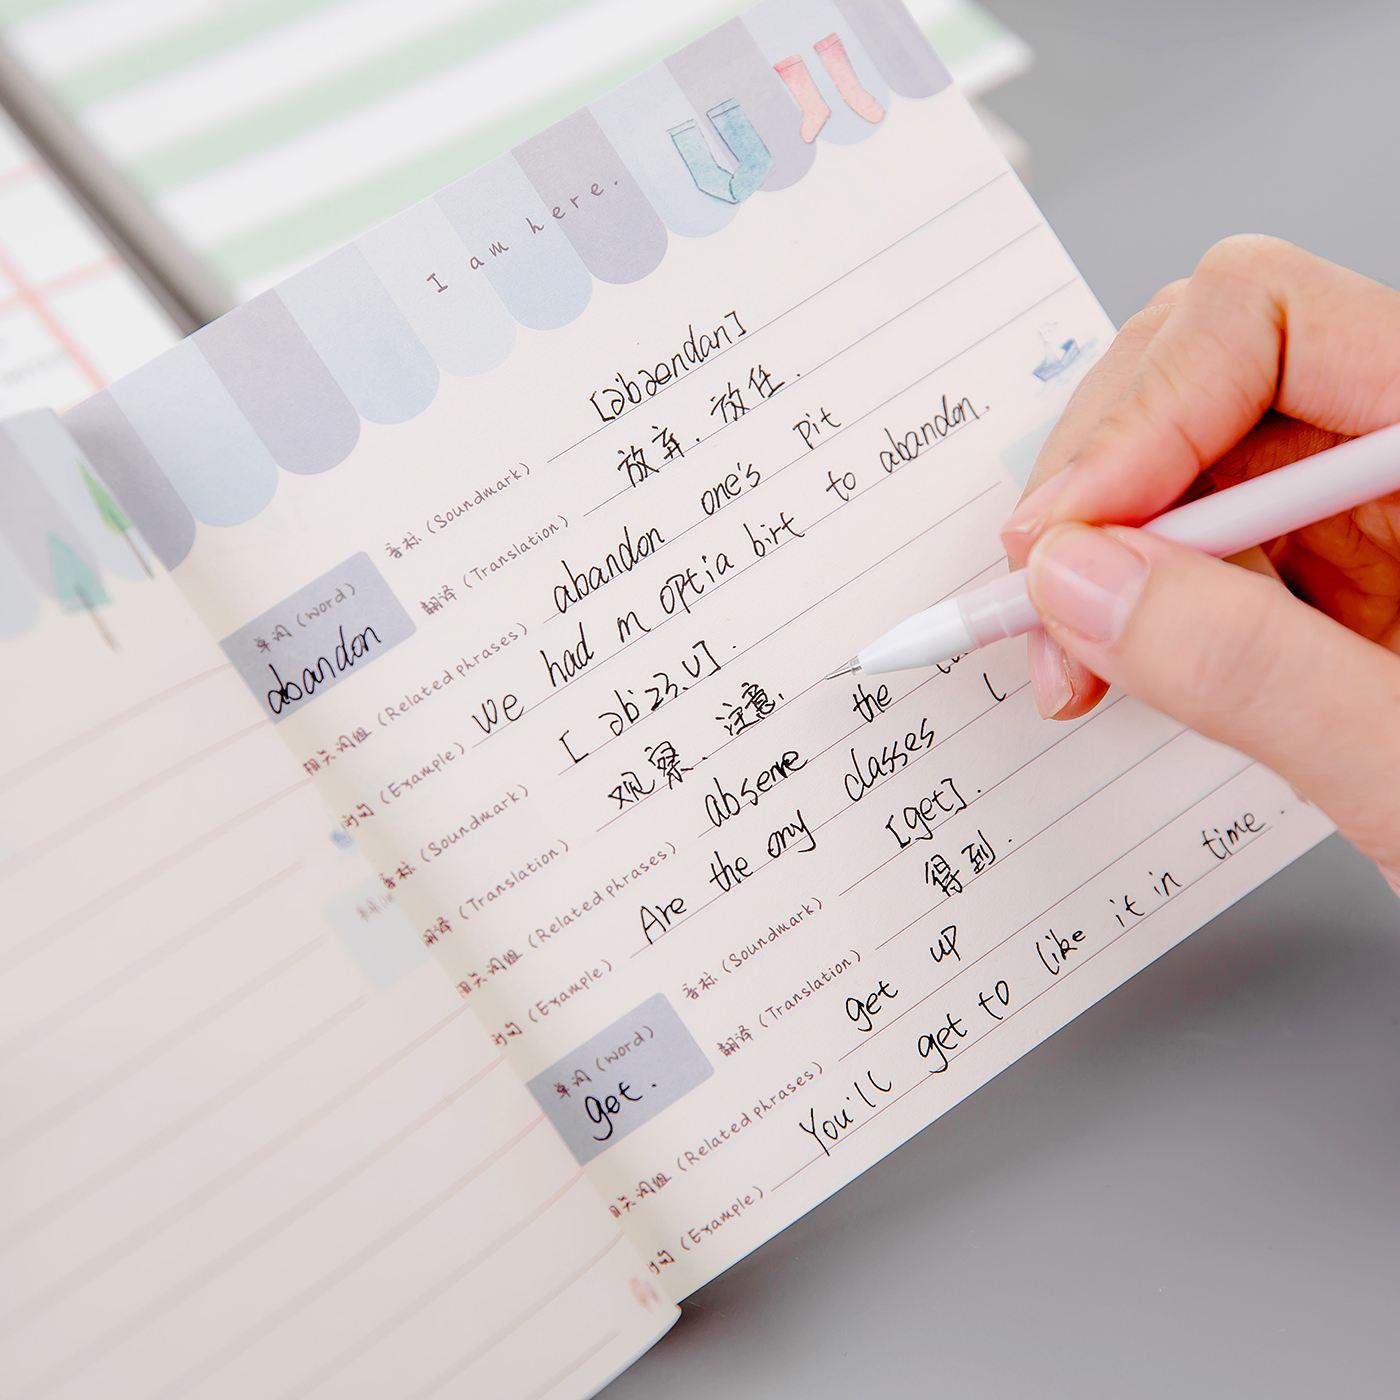 I am here.
音标 (Soundmark) [əbændən]
单词 (Word) 翻译 (Translation) 放弃. 放任.
abandon
相关词组 (Related phrases) abandon one's pit
例句 (Example) We had m optia birt to abandon.
音标 (Soundmark) [əb'zɜ:v].
翻译 (Translation) 观察. 注意.
相关词组 (Related phrases) abserve the
例句 (Example) Are the ony classes
音标 (Soundmark) [get].
单词 (Word) 翻译 (Translation) 得到.
get.
相关词组 (Related phrases) get up
例句 (Example) You'll get to like it in time.